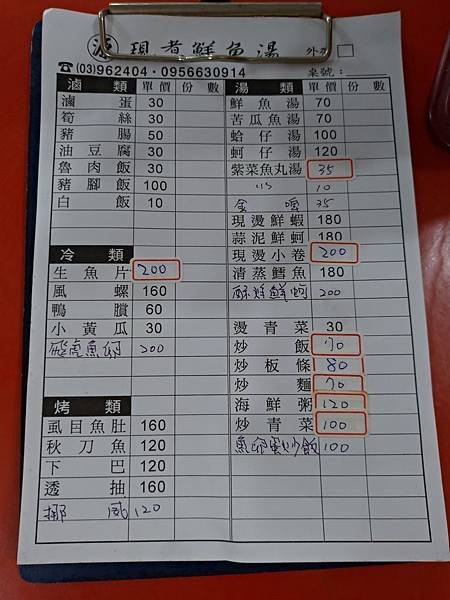 源 現煮鮮魚湯 外
☎(03)962404・0956630914 桌號：
滷類 單價 份數
滷蛋 30
筍絲 30
豬腸 50
油豆腐 30
魯肉飯 30
豬腳飯 100
白飯 10
冷類
生魚片 200
風螺 160
鴨臢 60
小黃瓜 30
飛虎魚卵 200
烤類
虱目魚肚 160
秋刀魚 120
下巴 120
透抽 160
挪威 120
湯類 單價 份數
鮮魚湯 70
苦瓜魚湯 70
蛤仔湯 100
蚵仔湯 120
紫菜魚丸湯 35
10
35
現燙鮮蝦 180
蒜泥鮮蚵 180
現燙小卷 200
清蒸鱈魚 180
酥炸鮮蚵 200
燙青菜 30
炒飯 70
炒板條 80
炒麵 70
海鮮粥 120
炒青菜 100
魚卵蛋炒飯 100